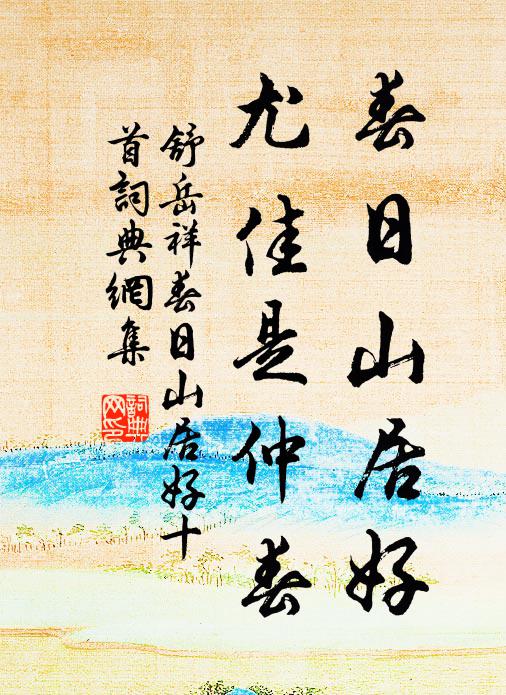 春日山居好
尤佳是仲春
舒岳祥春日山居好十
首詞典網集